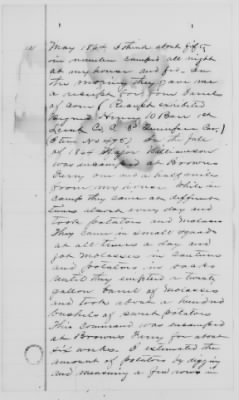 May 1864 I think about fifty
in number camped all night
at my house and fed. In
the morning they gave me
a receipt for four barrels
of corn (Receipt exhibited
Signed Henry 10 Barr 1st
Lieut Co. C. 5 Tennessee Cav.)
(Item No 4 &5) In the fall
of 1864 Major Williamson
was encamped at Browns
Ferry one and a half miles
from my house while in
camp they came at different
times almost every day and
took potatoes and molasses
They came in small squads
at all times a day and
got molasses in canteens
and potatoes in sacks
until they emptied a twenty
gallon barrel of molasses
and took about a hundred
bushels of sweet potatoes
This command was encamped
at Browns Ferry for about
six weeks. I estimated the
amount of potatoes by digging
and measuring a few rows in